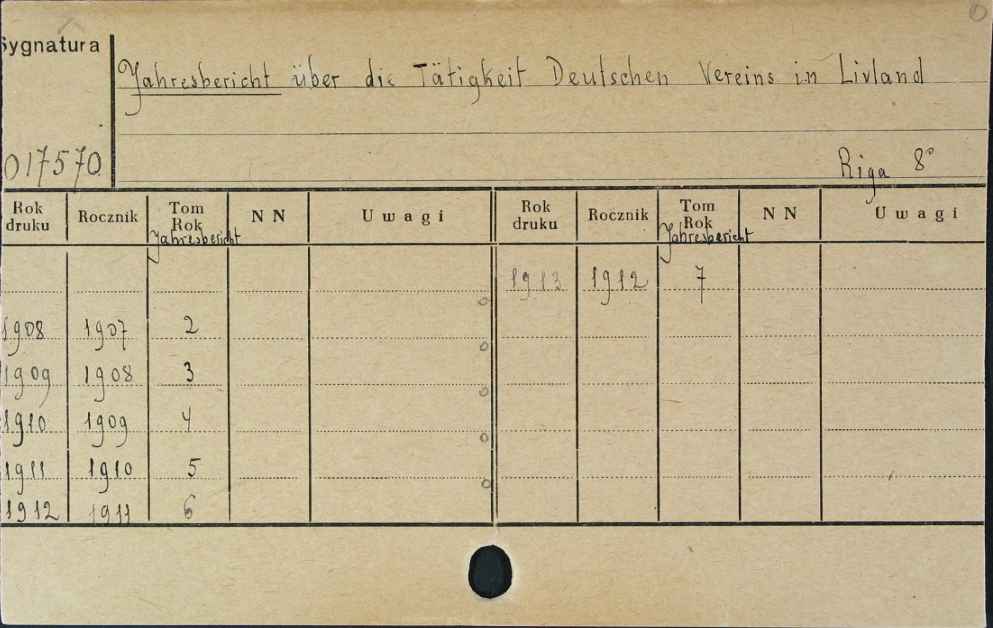 Sygnatura
Jahresbericht über die Tätigkeit Deutschen Vereins in Livland
017570
Riga 8°
Rok druku Rocznik Tom Rok Jahresbericht NN Uwagi Rok druku Rocznik Tom Rok Jahresbericht NN Uwagi
1913 1912 7
1908 1907 2
1909 1908 3
1910 1909 4
1911 1910 5
1912 1911 6